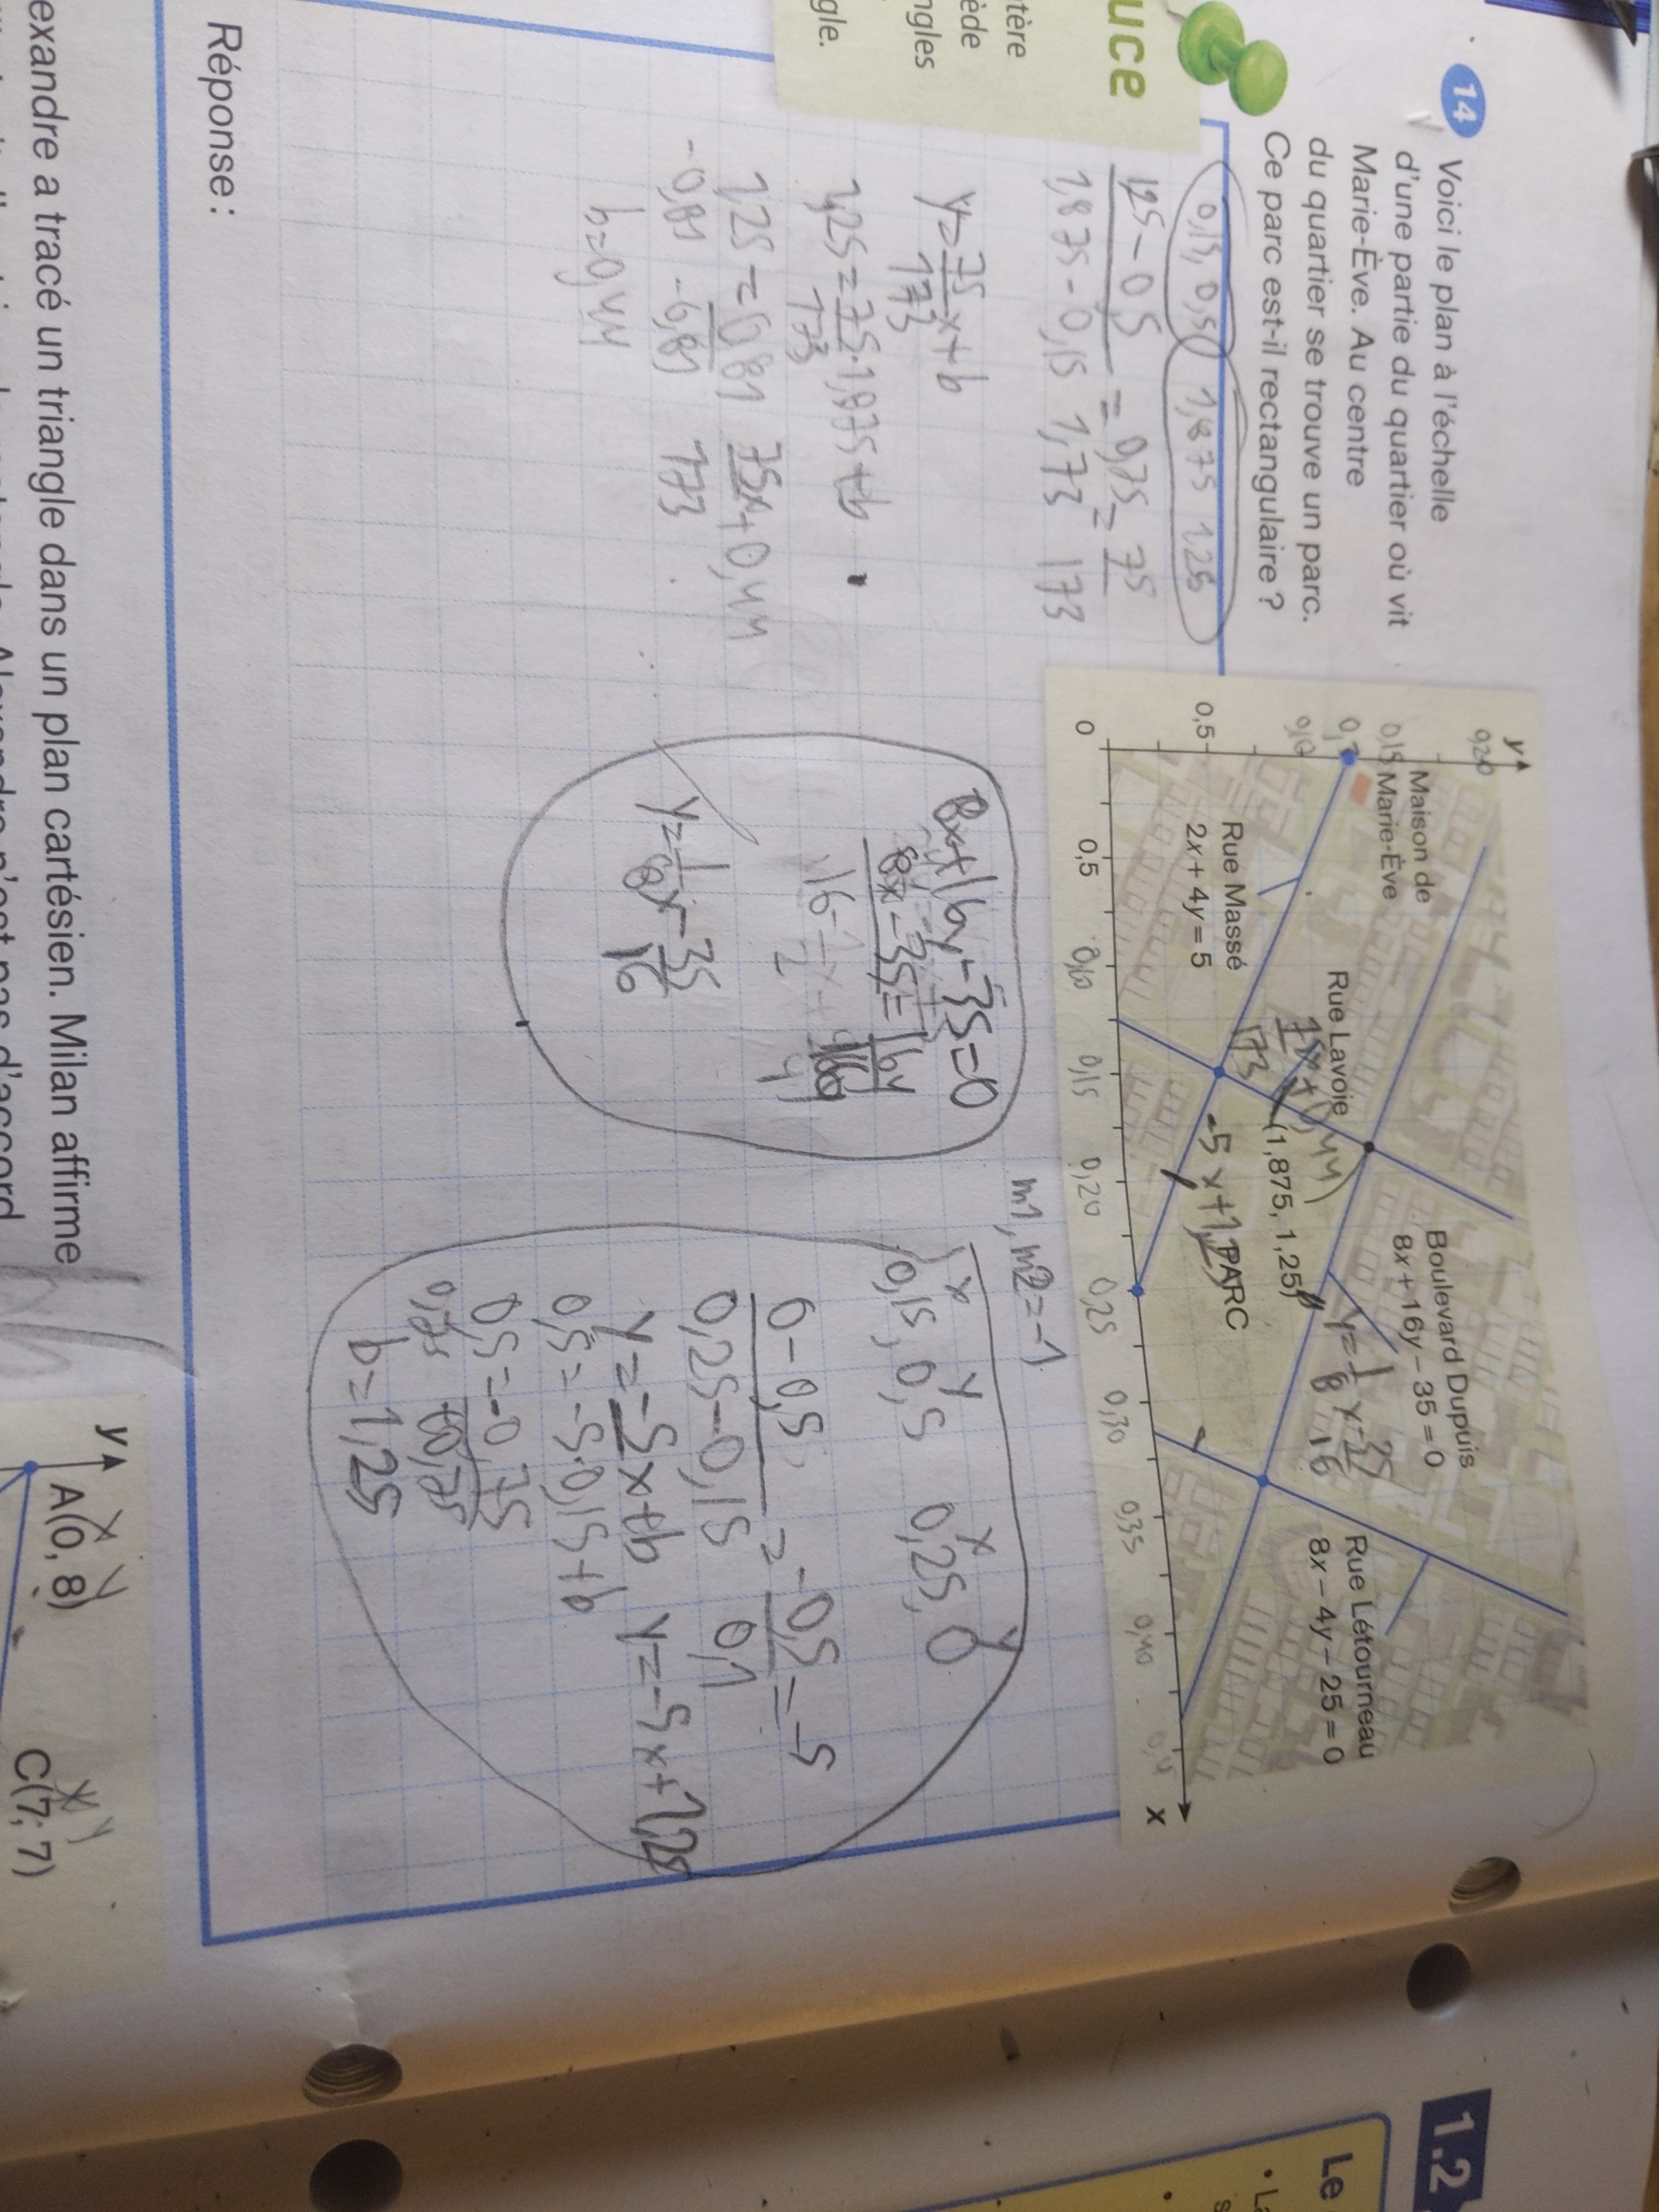 14 Voici le plan à l'échelle
d'une partie du quartier où vit
Marie-Ève. Au centre
du quartier se trouve un parc.
Ce parc est-il rectangulaire ?
uce
tère
ède
ngles
gle.
y
0,20
0,15
0,5
0
0,5
0,10
0,15
0,20
0,25
0,30
0,35
0,40
x
Maison de
Marie-Ève
Rue Massé
2x + 4y = 5
Rue Lavoie
(1,875, 1,25)
PARC
-5x+1,2
Boulevard Dupuis
8x + 16y − 35 = 0
Rue Létourneau
8x − 4y − 25 = 0
0,15, 0,50 1,875 1,25
1,25 - 0,5 = 0,75 = 75
1,875 - 0,15 1,73 173
y = 75 x + b
173
1,25 = 75 · 1,875 + b
173
1,25 = 0,81 75x + 0,44
-0,81 -0,81 173
b = 0,44
8x + 16y - 35 = 0
8x - 35 = 16y
y = 1 x - 35
16
m1, m2 = -1
x y x y
0,15, 0,5 0,25, 0
0 - 0,5 = -0,5 = -5
0,25 - 0,15 0,1
y = -5x + b y = -5x + 1,25
0,5 = -5·0,15 + b
0,5 = -0,75
0,75 +0,75
b = 1,25
Réponse :
exandre a tracé un triangle dans un plan cartésien. Milan affirme
y
x y
A(0, 8)
x y
C(7, 7)
1.2
Le